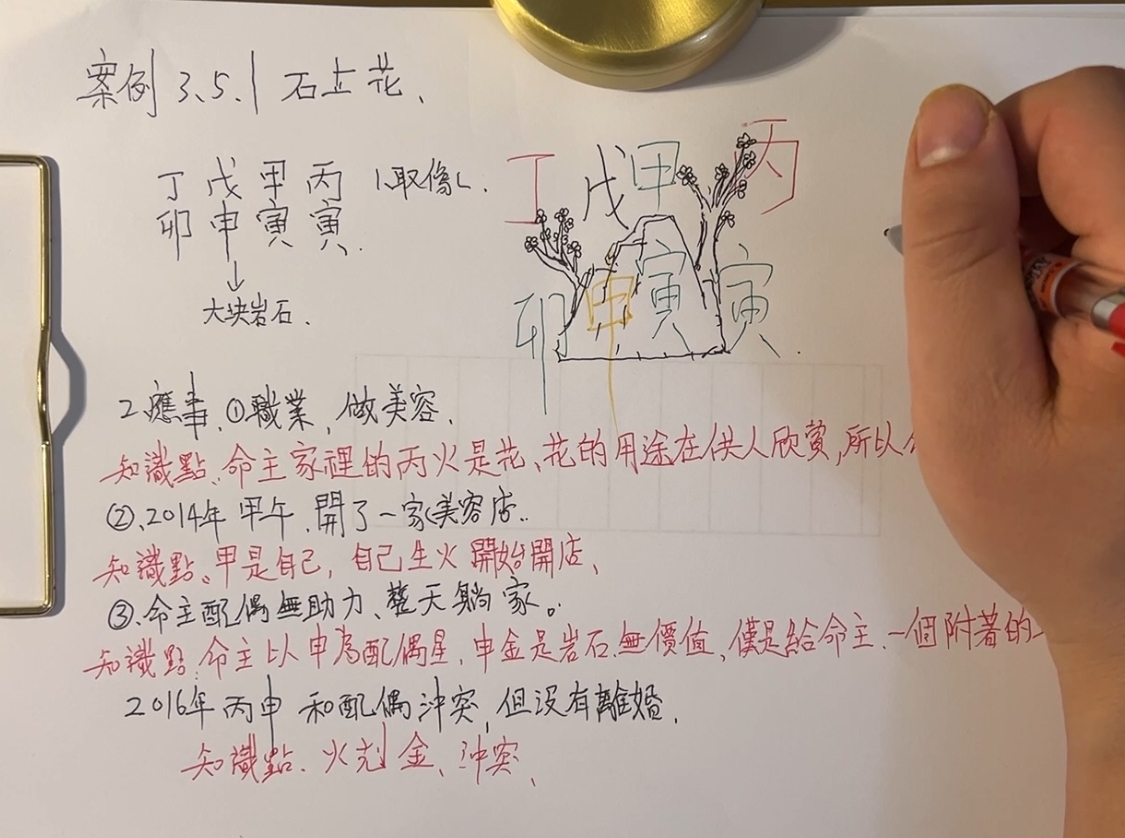 案例3.5.1 石上花、
丁戊甲丙 1、取像、
卯申寅寅
大块岩石.
丁戊甲丙
卯申寅寅
2.應事、①職業,做美容.
知識點、命主家裡的丙火是花、花的用途在供人欣賞,所以
②、2014年甲午.開了一家美容店.
知識點、甲是自己,自己生火開始開店、
③、命主配偶無助力、整天躺家。
知識點、命主以申為配偶星,申金是岩石.無價值,僅是給命主一個附著的
2016年丙申 和配偶沖突,但没有離婚.
知識點.火剋金、沖突、